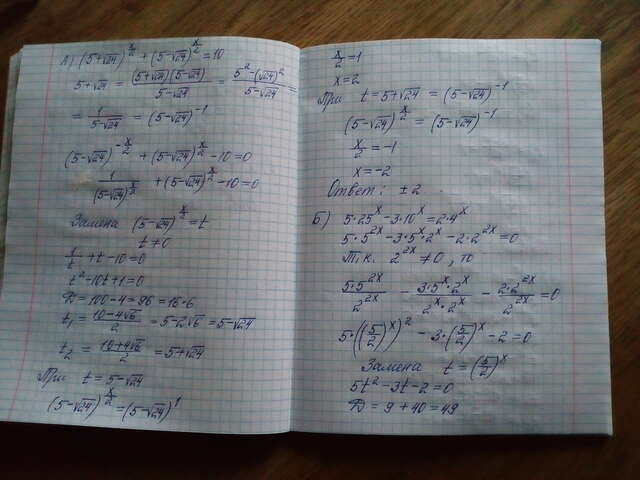 А) (5+√24)^(x/2) + (5-√24)^(x/2) = 10
5+√24 = ((5+√24)(5-√24))/(5-√24) = (5²-(√24)²)/(5-√24) =
= 1/(5-√24) = (5-√24)^(-1)
(5-√24)^(-x/2) + (5-√24)^(x/2) - 10 = 0
1/(5-√24)^(x/2) + (5-√24)^(x/2) - 10 = 0
Замена (5-√24)^(x/2) = t
t ≠ 0
1/t + t - 10 = 0
t² - 10t + 1 = 0
D = 100 - 4 = 96 = 16·6
t₁ = (10-4√6)/2 = 5-2√6 = 5-√24
t₂ = (10+4√6)/2 = 5+√24
При t = 5-√24
(5-√24)^(x/2) = (5-√24)^1
x/2 = 1
x = 2
При t = 5+√24 = (5-√24)^(-1)
(5-√24)^(x/2) = (5-√24)^(-1)
x/2 = -1
x = -2
Ответ: ±2
Б) 5·25^x - 3·10^x = 2·4^x
5·5^(2x) - 3·5^x·2^x - 2·2^(2x) = 0
Т.к. 2^(2x) ≠ 0, то
(5·5^(2x))/2^(2x) - (3·5^x·2^x)/(2^x·2^x) - (2·2^(2x))/2^(2x) = 0
5·((5/2)^x)² - 3·(5/2)^x - 2 = 0
Замена t = (5/2)^x
5t² - 3t - 2 = 0
D = 9 + 40 = 49